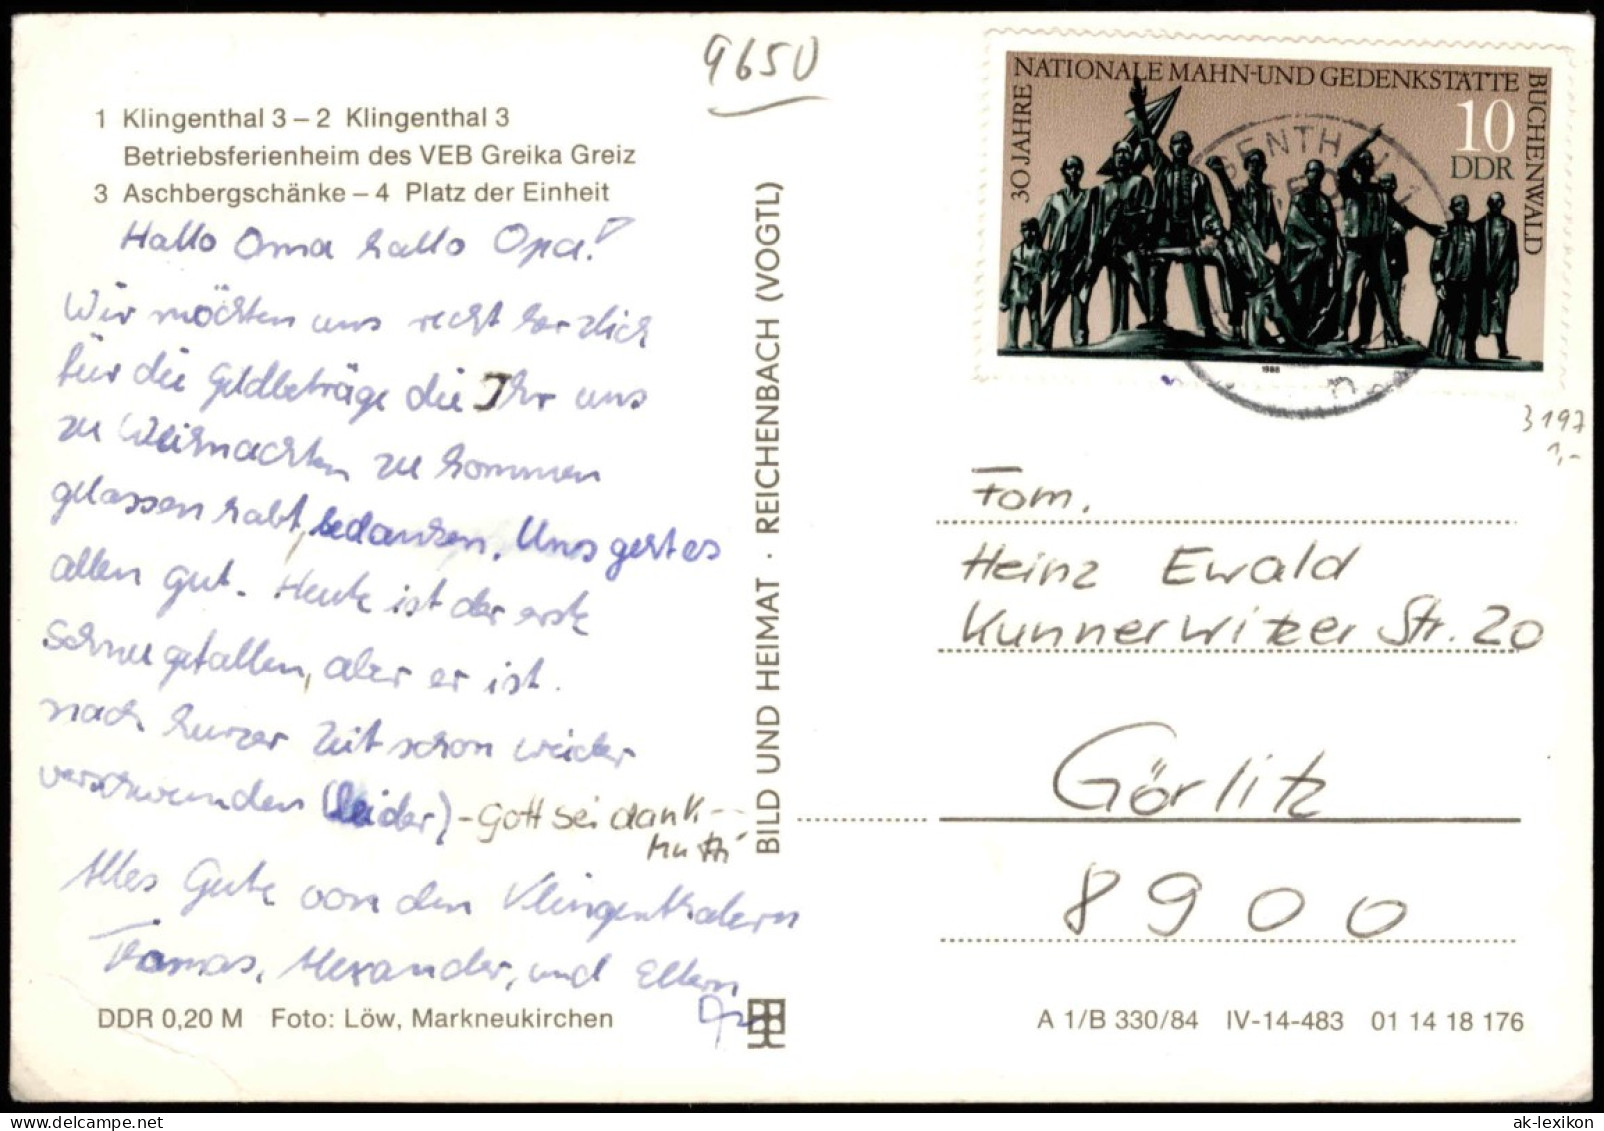 9650
1 Klingenthal 3 – 2 Klingenthal 3
Betriebsferienheim des VEB Greika Greiz
3 Aschbergschänke – 4 Platz der Einheit
Hallo Oma hallo Opa!
Wir möchten uns recht herzlich
für die Geldbeträge die Ihr uns
zu Weihnachten zu kommen
gelassen habt, bedanken. Uns geht es
allen gut. Heute ist der erste
Schnee gefallen, aber er ist
nach kurzer Zeit schon wieder
verschwunden (leider) - Gott sei dank --
Mutti
Alles Gute von den Klingenthalern
Thomas, Alexander, und Eltern
DDR 0,20 M Foto: Löw, Markneukirchen
BILD UND HEIMAT · REICHENBACH (VOGTL)
30 JAHRE NATIONALE MAHN-UND GEDENKSTÄTTE BUCHENWALD
10
DDR
1988
GENTHAL 1
3197
1,-
Fam.
Heinz Ewald
Kunnerwitzer Str. 20
Görlitz
8900
A 1/B 330/84 IV-14-483 01 14 18 176
ak-lexikon